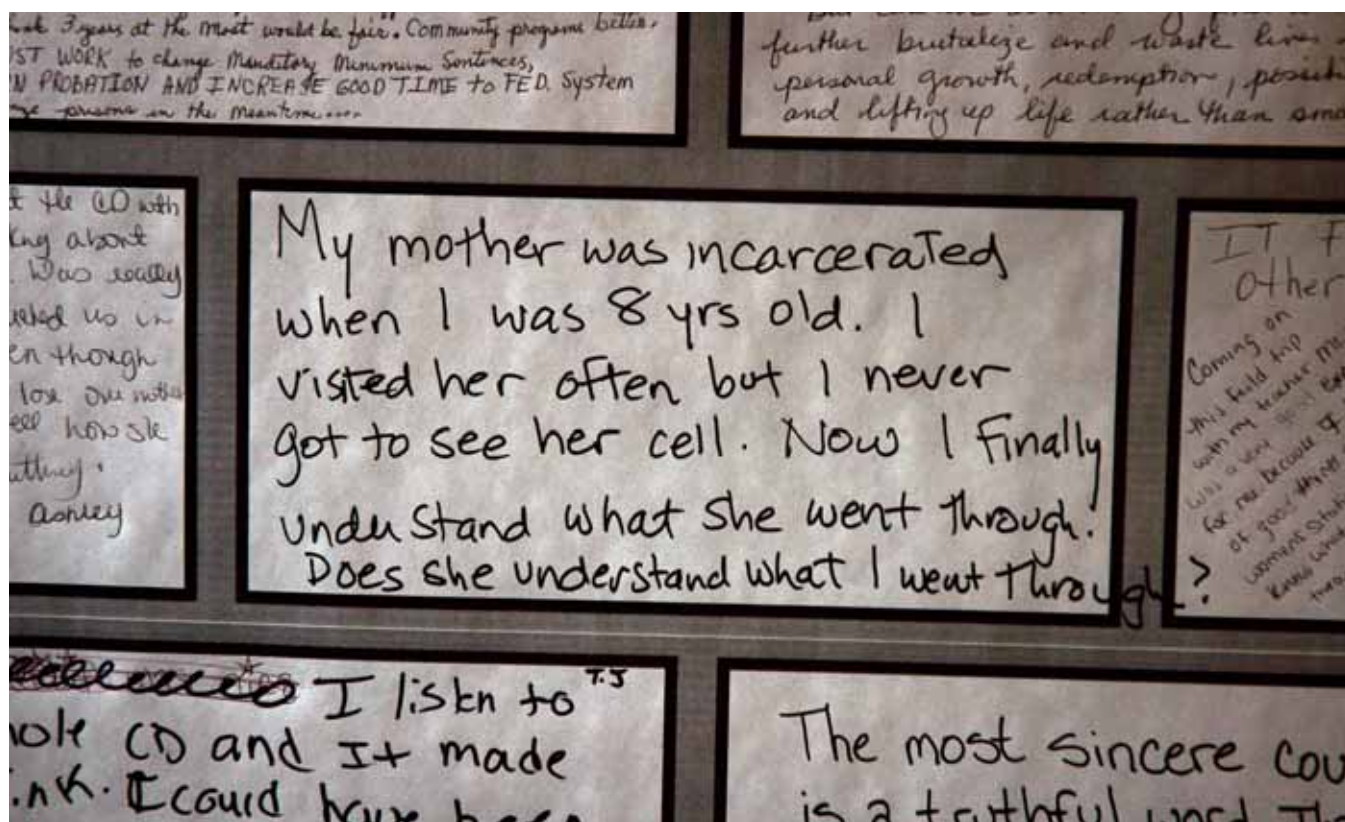 3 years at the most would be fair". Community programs better.
WORK to change Manditory Minimum Sentences,
PROBATION AND INCREASE GOOD TIME to FED. System
prisons in the meantime....
further brutalize and waste lives
personal growth, redemption,
and lifting up life rather than
the CD with
about
Was really
us in
though
lose our
how she
Ashley
My mother was incarcerated
when I was 8 yrs old. I
visited her often but I never
got to see her cell. Now I finally
understand what she went through!
Does she understand what I went through?
IT
Other
Coming on
this field trip
with my teacher
was a very good
for me because of
of good things
I listen to T.J
CD and It made
I could have been
The most sincere
is a truthful word